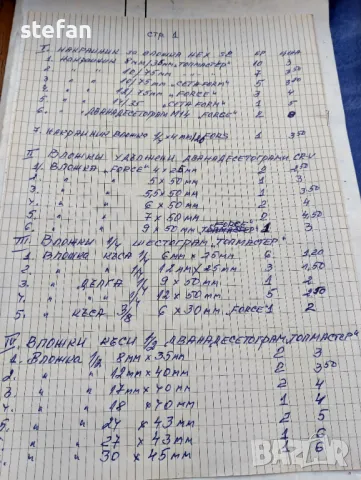 stefan
стр. 1
I. НАКРАЙНИЦИ ЗА ВЛОЖКА HEX БР ЦЕНА
1. НАКРАЙНИЦИ 8мм/30мм „ТОПМАСТЕР" 10 3
2. " " 10/75мм " 7 3⁵⁰
3. " " 10/75мм „СЕТА-FORM" 5 3⁵⁰
4. " " 12/75мм „FORCE" 3 4
5. " " „СЕТА-FORM" 1 5
6. " „ДВАНАДЕСЕТОГРАМ M14 FORCE" 2
7. НАКРАЙНИК ВЛОЖКА 1/4 FORCE 1 3⁵⁰
II. ВЛОЖКИ УДЪЛЖЕНИ ДВАНАДЕСЕТОГРАМИ CR-V
1. ВЛОЖКА „FORCE" 4 х 25мм 2
2. " " 5 х 50мм 1 3
3. " " 5,5 х 50мм 1 3⁵⁰
4. " " 6 х 50мм 2 4
5. " " 7 х 50мм 2 4,50
6. " " 9 х 50мм „FORCE" 1 3
III. ВЛОЖКИ 1/4 ШЕСТОГРАМ „ТОПМАСТЕР"
1. ВЛОЖКА КЪСА 1/4 6мм х 25мм 6 1,20
2. " " 1/4 12мм х 25мм 3 1,50
3. " ДЪЛГА 1/4 9 х 50мм 1 2
4. " " 1/4 12 х 50мм 5 2⁵⁰
5. " КЪСА 3/8 6 х 30мм „FORCE" 1 2
IV. ВЛОЖКИ КЕСИ 1/2 ДВАНАДЕСЕТОГРАМ „ТОПМАСТЕР"
1. ВЛОЖКА 1/2 8мм х 35мм 2 3
2. " " 12мм х 40мм 2 3⁵⁰
3. " " 17мм х 40мм 2 4
4. " " 18 х 40мм 1 4
5. " " 24 х 43мм 2 5
" " 27 х 43мм 1 6
" " 30 х 45мм 2 6
bazar